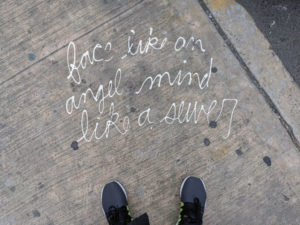 face like an
angel mind
like a sewer